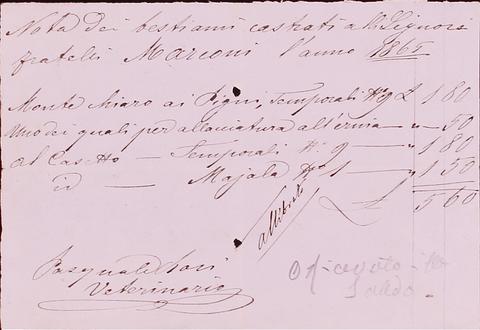 Nota dei bestiami castrati alli Signori
fratelli Marconi l'anno 1865
Monte Chiaro ai Pigni, Temporali N.º 9 £ 1 80
Uno dei quali per allacciatura all'ernia — " — 50
Al Casetto — Temporali N.º 9 — " 1 80
id — Majala N.º 1 — " 1 50
£ 5 60
allibrato
Pasquale
Veterinario
Saldo